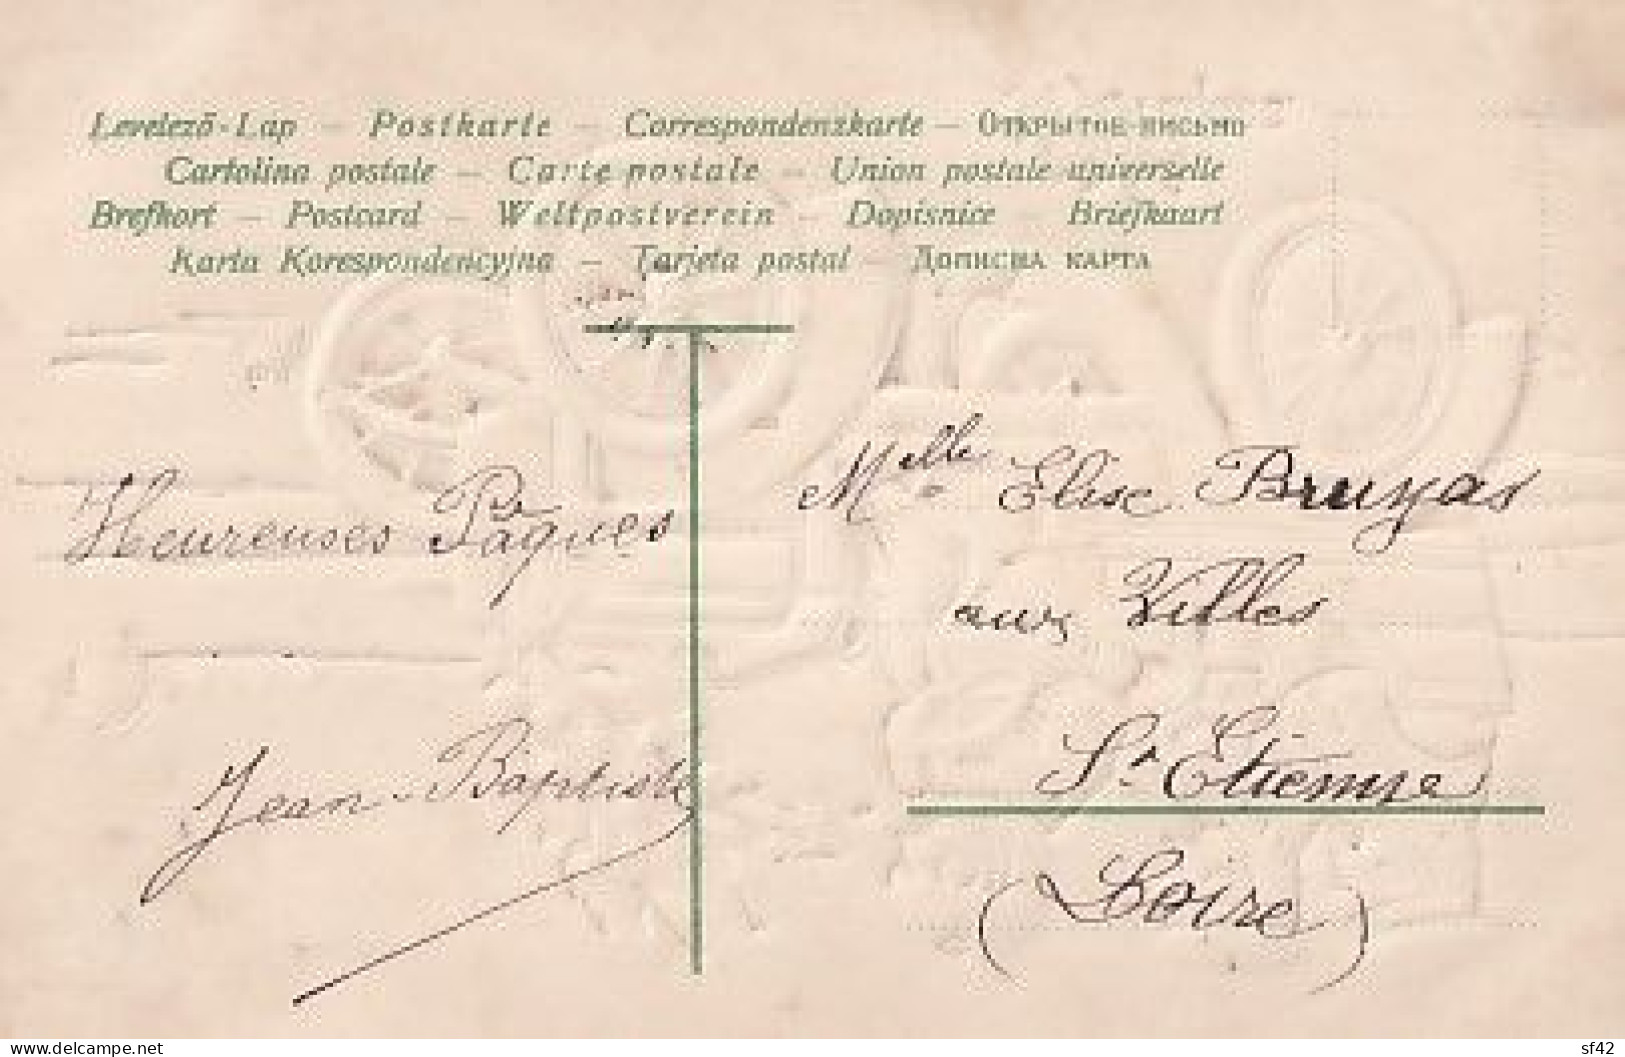 Levelező-Lap – Postkarte – Correspondenzkarte – Открытое письмо
Cartolina postale – Carte postale – Union postale universelle
Brefkort – Postcard – Weltpostverein – Dopisnice – Briefkaart
Karta Korespondencyjna – Tarjeta postal – Дописна карта
Heureuses Pâques
Jean-Baptiste
Melle Elise Bruyas
aux Villes
St Etienne
(Loire)
https://www.delcampe.net
sf42